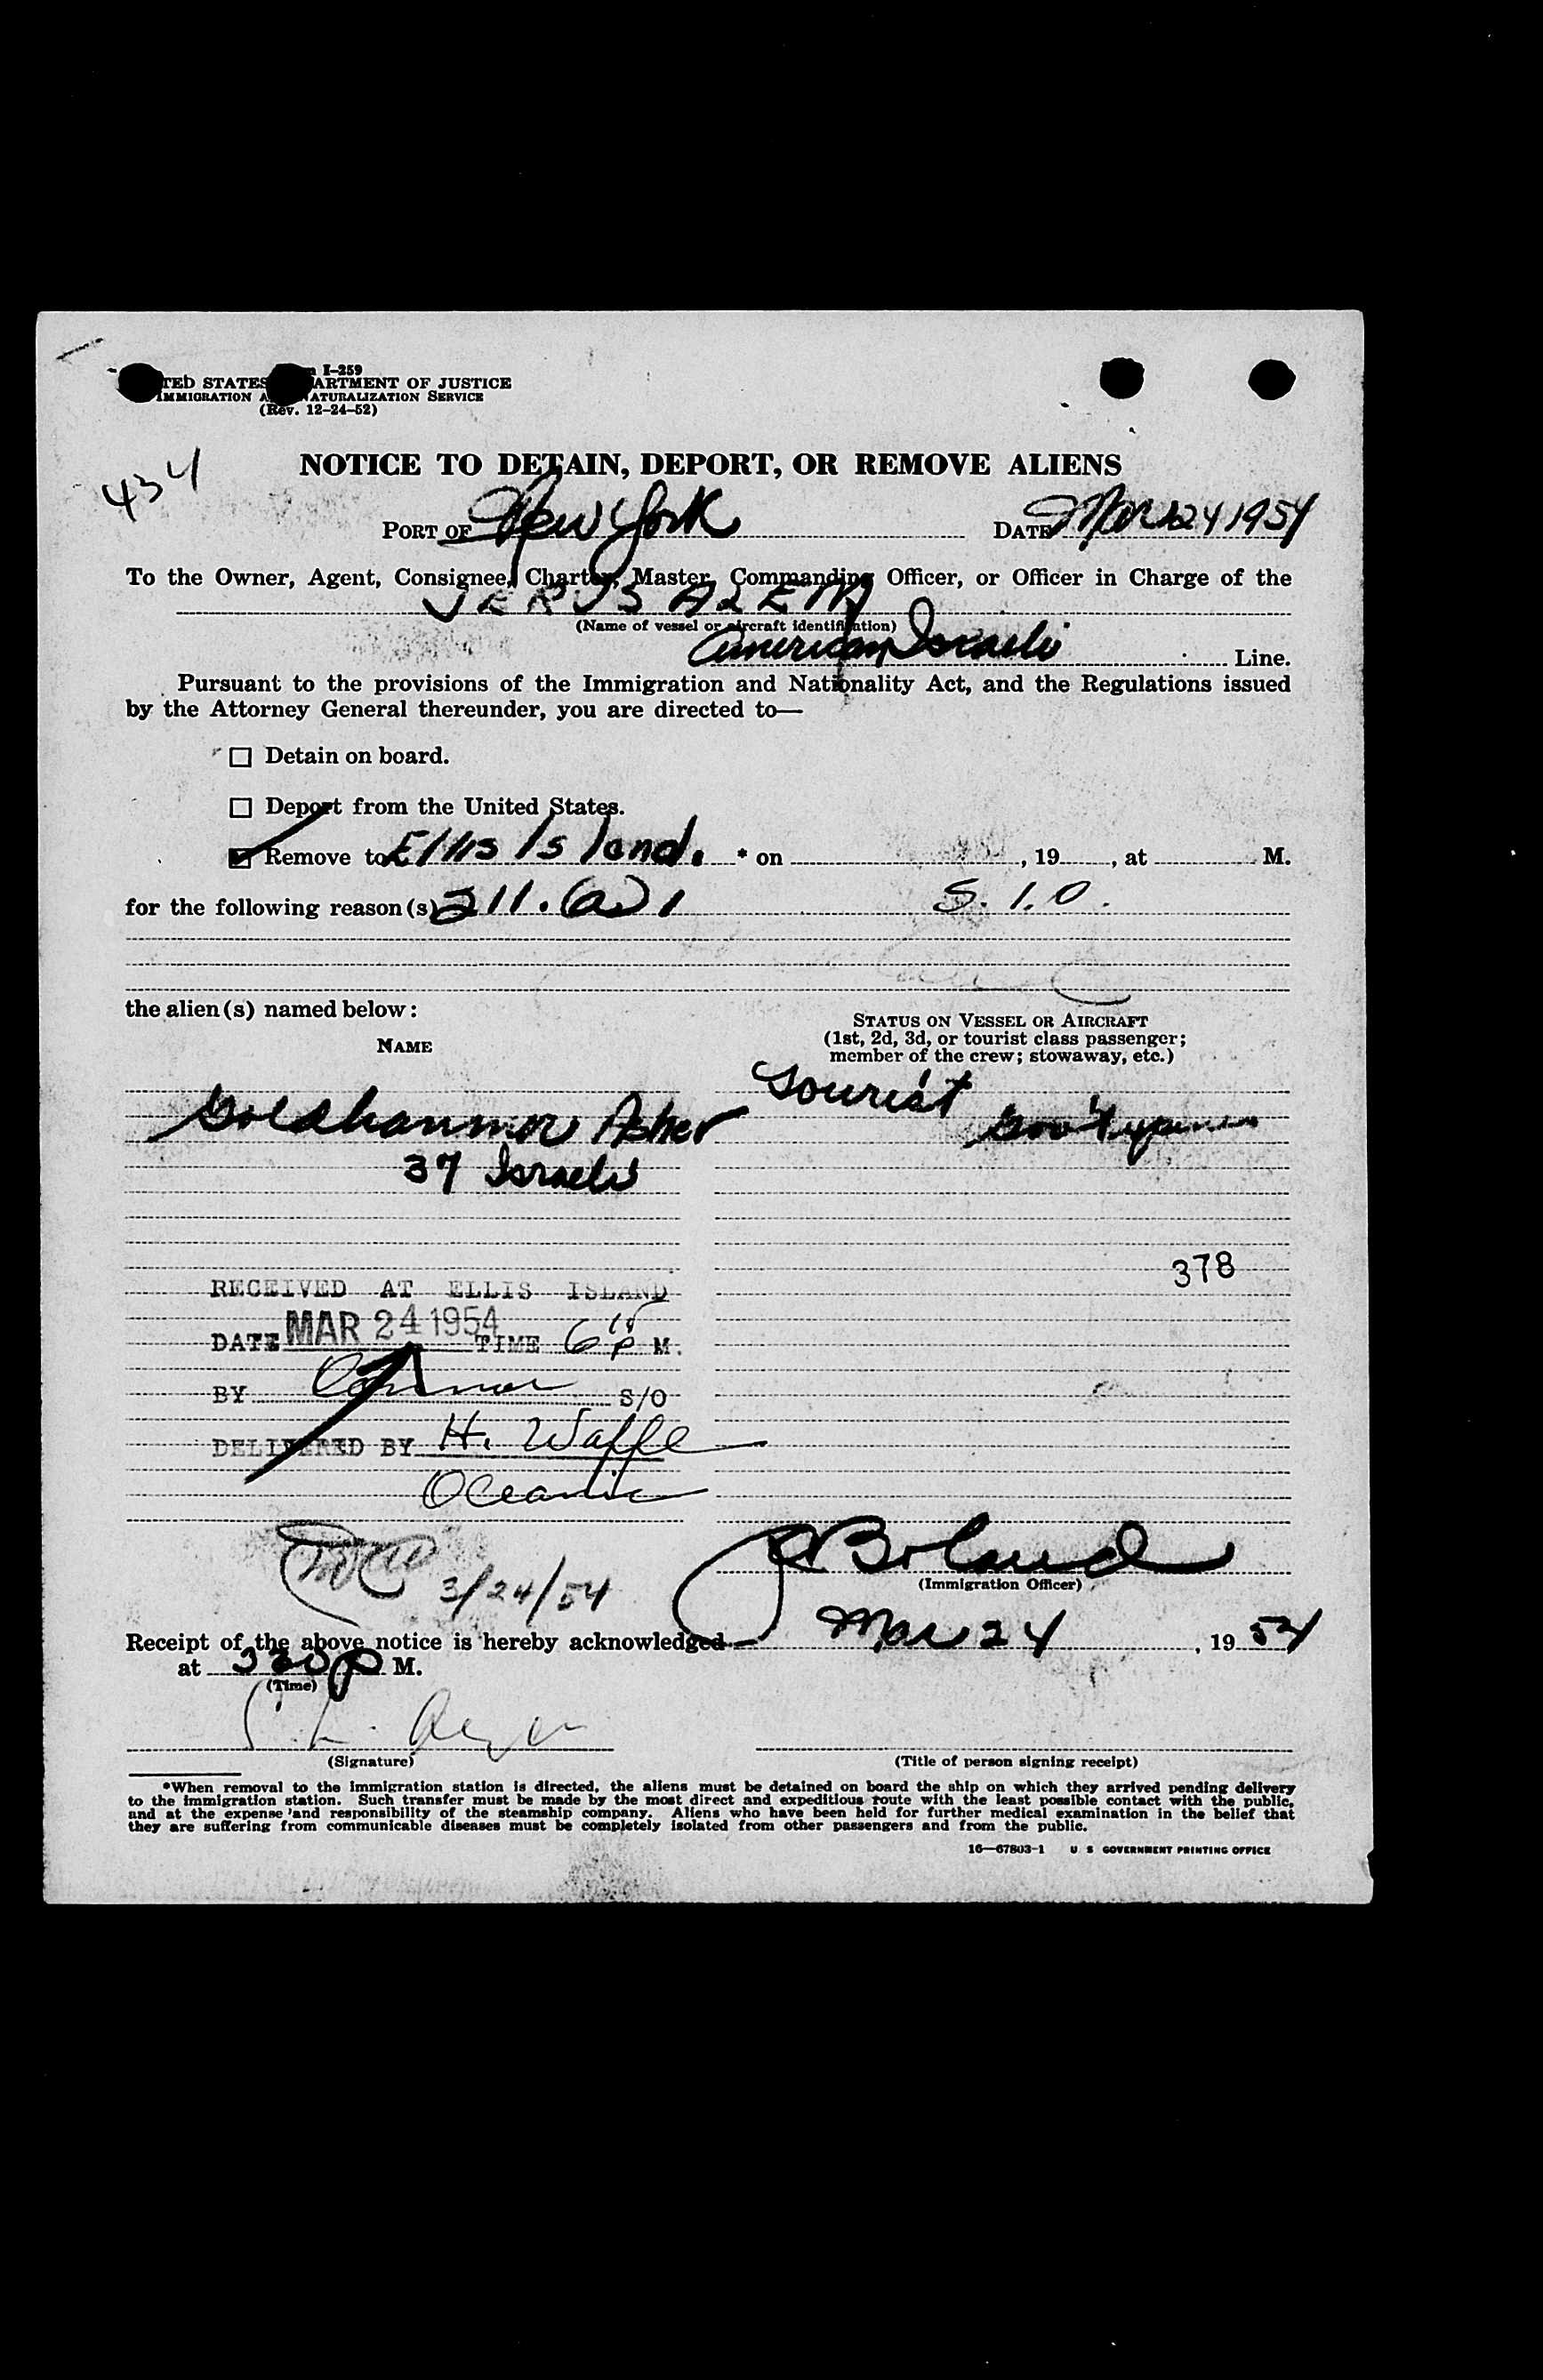 I-259
TED STATES ARTMENT OF JUSTICE
IMMIGRATION A NATURALIZATION SERVICE
(Rev. 12-24-52)
434
NOTICE TO DETAIN, DEPORT, OR REMOVE ALIENS
PORT OF New York DATE Mar 24 1954
To the Owner, Agent, Consignee, Charter, Master, Commanding Officer, or Officer in Charge of the
JERUSALEM
(Name of vessel or aircraft identification)
American Israeli Line.
Pursuant to the provisions of the Immigration and Nationality Act, and the Regulations issued
by the Attorney General thereunder, you are directed to—
☐ Detain on board.
☐ Deport from the United States.
☑ Remove to Ellis Island. * on , 19 , at M.
for the following reason(s) 211.(a)1 S.I.O.
the alien(s) named below:
NAME
STATUS ON VESSEL OR AIRCRAFT
(1st, 2d, 3d, or tourist class passenger;
member of the crew; stowaway, etc.)
Tourist
Asher Gov't
37 Israeli
378
RECEIVED AT ELLIS ISLAND
DATE MAR 24 1954 TIME 6 15 P M.
BY S/O
DELIVERED BY H. Waffle
Oceanic
J Boland
(Immigration Officer)
3/24/54
Receipt of the above notice is hereby acknowledged Mar 24, 19 54
at 330 P M.
(Time)
(Signature)
(Title of person signing receipt)
*When removal to the immigration station is directed, the aliens must be detained on board the ship on which they arrived pending delivery
to the immigration station. Such transfer must be made by the most direct and expeditious route with the least possible contact with the public,
and at the expense and responsibility of the steamship company. Aliens who have been held for further medical examination in the belief that
they are suffering from communicable diseases must be completely isolated from other passengers and from the public.
16—67803-1 U S GOVERNMENT PRINTING OFFICE